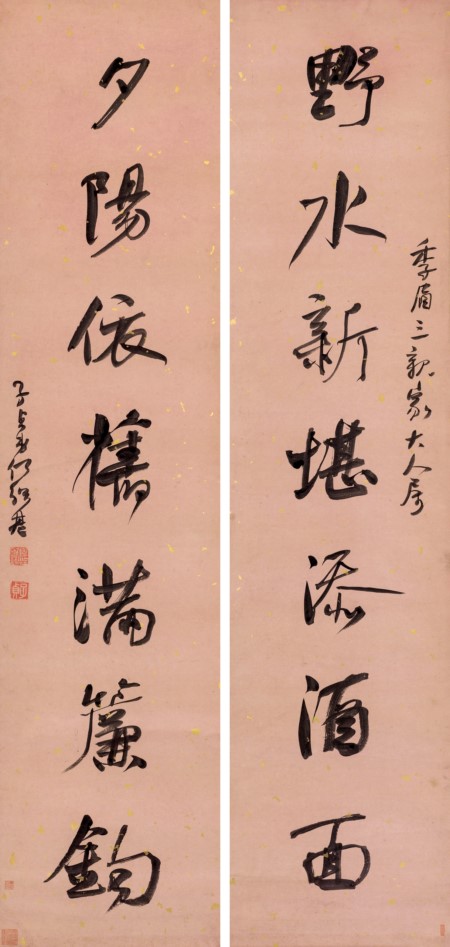 季眉三親家大人属
野水新堪添酒面
夕陽依舊滿簾鈎
子貞弟何紹基